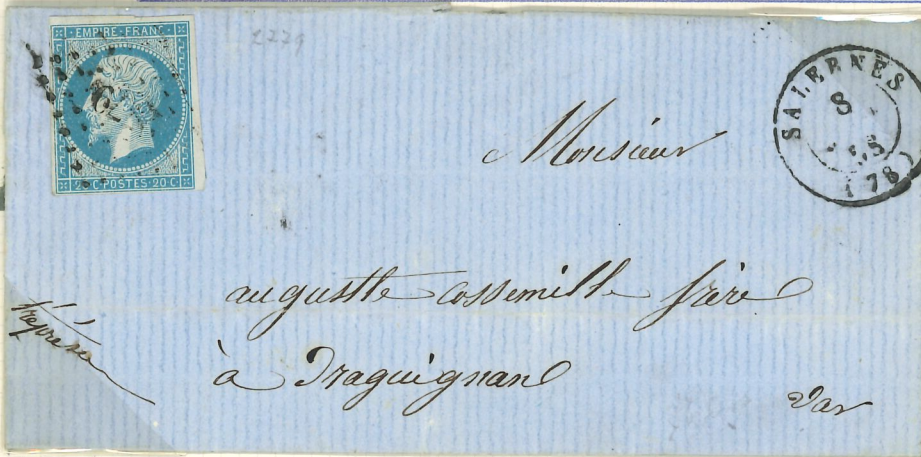 EMPIRE FRANC
20 C POSTES 20 C
2229
SALERNES
8
(78)
Monsieur
augustte cossemille frère
à Draguignan
Var